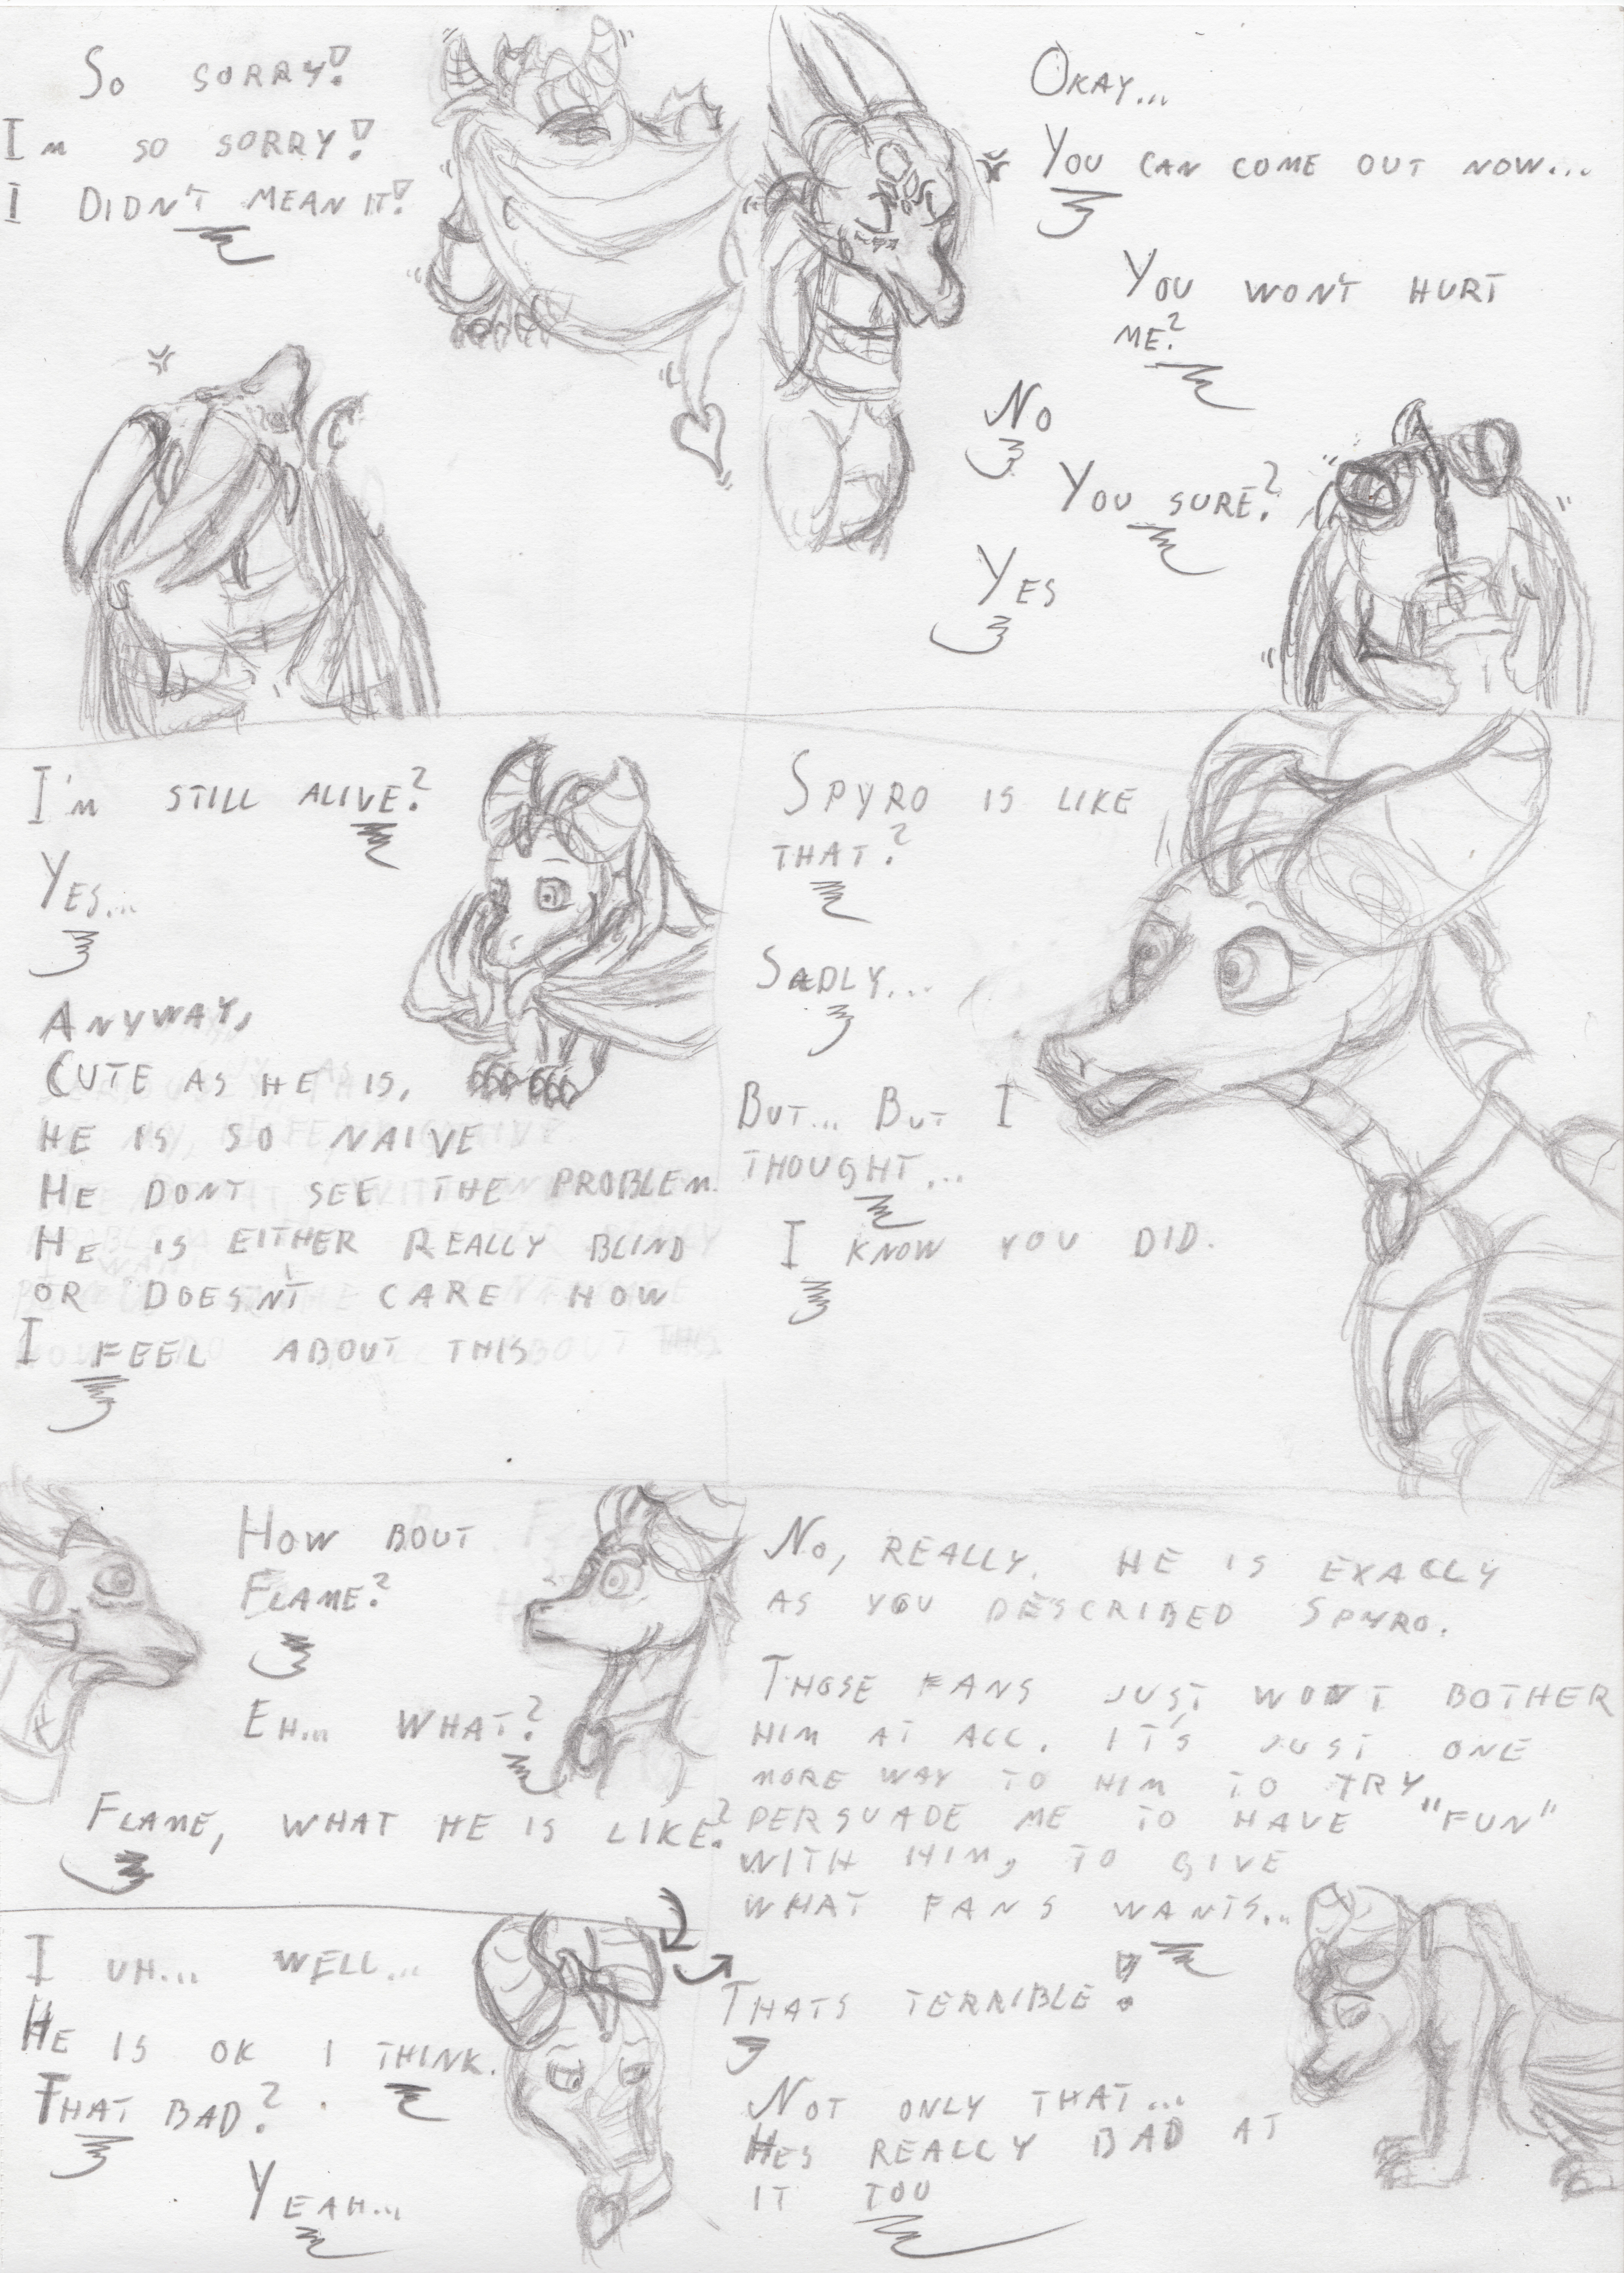 So SORRY!
I'm SO SORRY!
I DIDN'T MEAN IT!
OKAY...
YOU CAN COME OUT NOW...
YOU WON'T HURT
ME?
NO
YOU SURE?
YES
I'm STILL ALIVE?
YES...
ANYWAY,
CUTE AS HE IS,
HE IS SO NAIVE
HE DONT SEE THE PROBLEM.
HE IS EITHER REALLY BLIND
OR DOESN'T CARE HOW
I FEEL ABOUT THIS
SPYRO IS LIKE
THAT?
SADLY...
BUT... BUT I
THOUGHT...
I KNOW YOU DID.
HOW BOUT
FLAME?
EH... WHAT?
FLAME, WHAT HE IS LIKE?
I UH... WELL...
HE IS OK I THINK.
THAT BAD?
YEAH...
NO, REALLY. HE IS EXACLY
AS YOU DESCRIBED SPYRO.
THOSE FANS JUST WON'T BOTHER
HIM AT ALL. IT'S JUST ONE
MORE WAY TO HIM TO TRY
PERSUADE ME TO HAVE "FUN"
WITH HIM, TO GIVE
WHAT FANS WANTS...
THATS TERRIBLE!
NOT ONLY THAT...
HES REALLY BAD AT
IT TOU